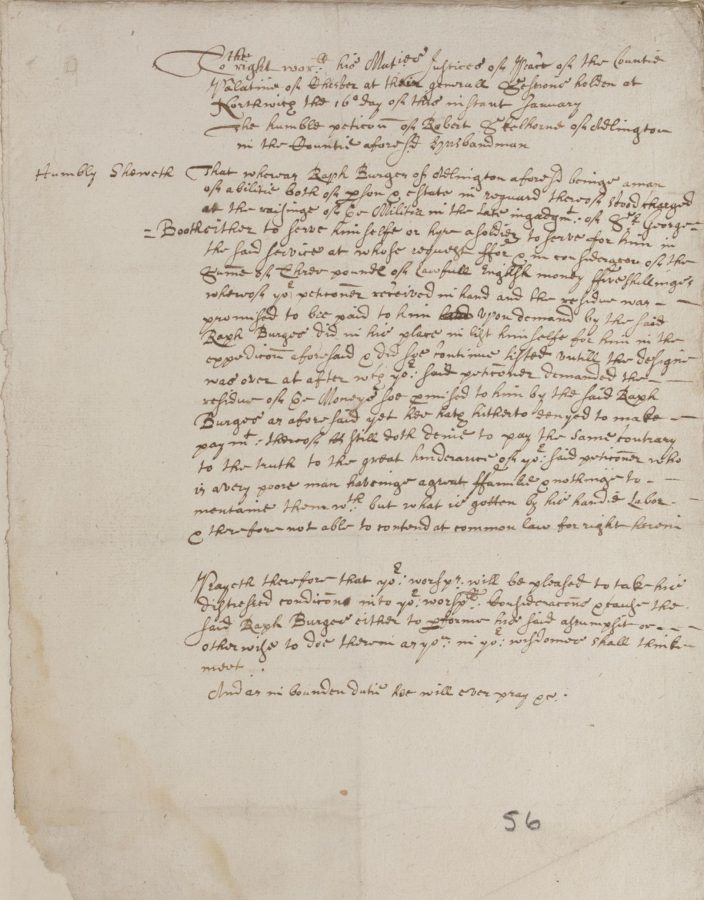 To the right wor:ll his Maties Justices of Peace of the Countie
Palatine of Chester at their generall Sessions holden at
Northwich the 16o day of this instant January
The humble peticon of Robert Skelhorne of Adlington
in the Countie aforesd: husbandman
Humbly Sheweth That whereas Raph Burges of Adlington aforesd beinge a man
of abilitie both of pson & estate in reguard thereof stood charged
at the raisinge of the Militia in the late ingadgmt: of Sr George =
= Booth either to serve himselfe or hyre a soldier to serve for him in
the said service at whose request ffor & in consideracon of the
Summe of Three pounds of lawfull English money ffive shillings
whereof yor: peticoner received in hand and the residue was –
promised to bee paid to him upon demand by the said
Raph Burges did in his place in list himselfe for him in the
expedicon aforesaid & did soe continue listed untill the designe
was over at after wch yor: said peticoner demanded the –
residue of the Moneys soe pmised to him by the said Raph
Burges as aforesaid yet hee hath hitherto denyed to make –
paymt: thereof & still doth denie to pay the same contrary
to the truth to the great hinderance of yor: said peticoner who
is a very poore man haveinge a great ffamilie & nothinge to –
mentaine them wth: but what is gotten by his hands Labor –
& therefore not able to contend at common law for right herein
Prayeth therefore that yor: worshps: will be pleased to take his
distressed condicon into yor: worshps: Consideracons & cause the
said Raph Burges either to pforme his said assumpsit or –
otherwise to doe therein as yor: in yor: wisdomes shall thinke
meet
And as in bounden dutie hee will ever pray &c:
56